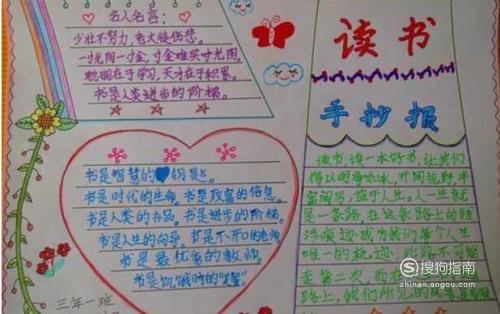 名人名言：
少壮不努力，老大徒伤悲。
一寸光阴一寸金，寸金难买寸光阴。
聪明在于学习，天才在于积累。
书是人类进步的阶梯。
读书
手抄报
书是智慧的钥匙。
书是时代的生命。书是致富的信息。
书是人类的 书是进步的阶梯。
书是人生的向导。书是不开口的老师
书是最优信的教师。
书是饥饿时的
三年一班
读书，读一本好书，让我们
得以明净如水，开阔视野，丰
富阅历，益于人生。人一生就
是一条路，在这条路上的跋
涉痕迹成为我们每个人生
唯一的轨迹，此路不可能
走第二次，而在
路上，我们所见的
搜狗指南
zhinan.sogou.com